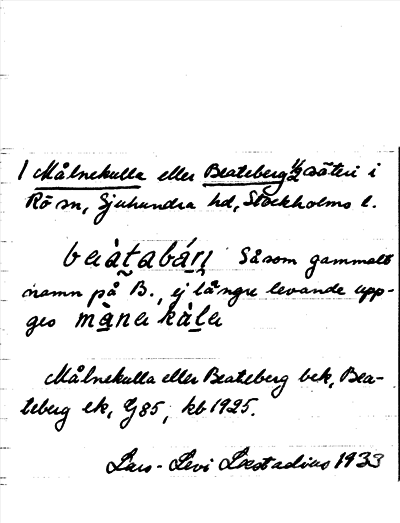 1 Målnekulla eller Beateberg ½ säteri i
Rö sn, Sjuhundra hd, Stockholms l.
beàtabárj Såsom gammalt
namn på B., ej längre levande upp-
ges mànakàla
Målnekulla eller Beateberg bek, Bea-
teberg ek, G 85, kb 1925.
Lars-Levi Læstadius 1933